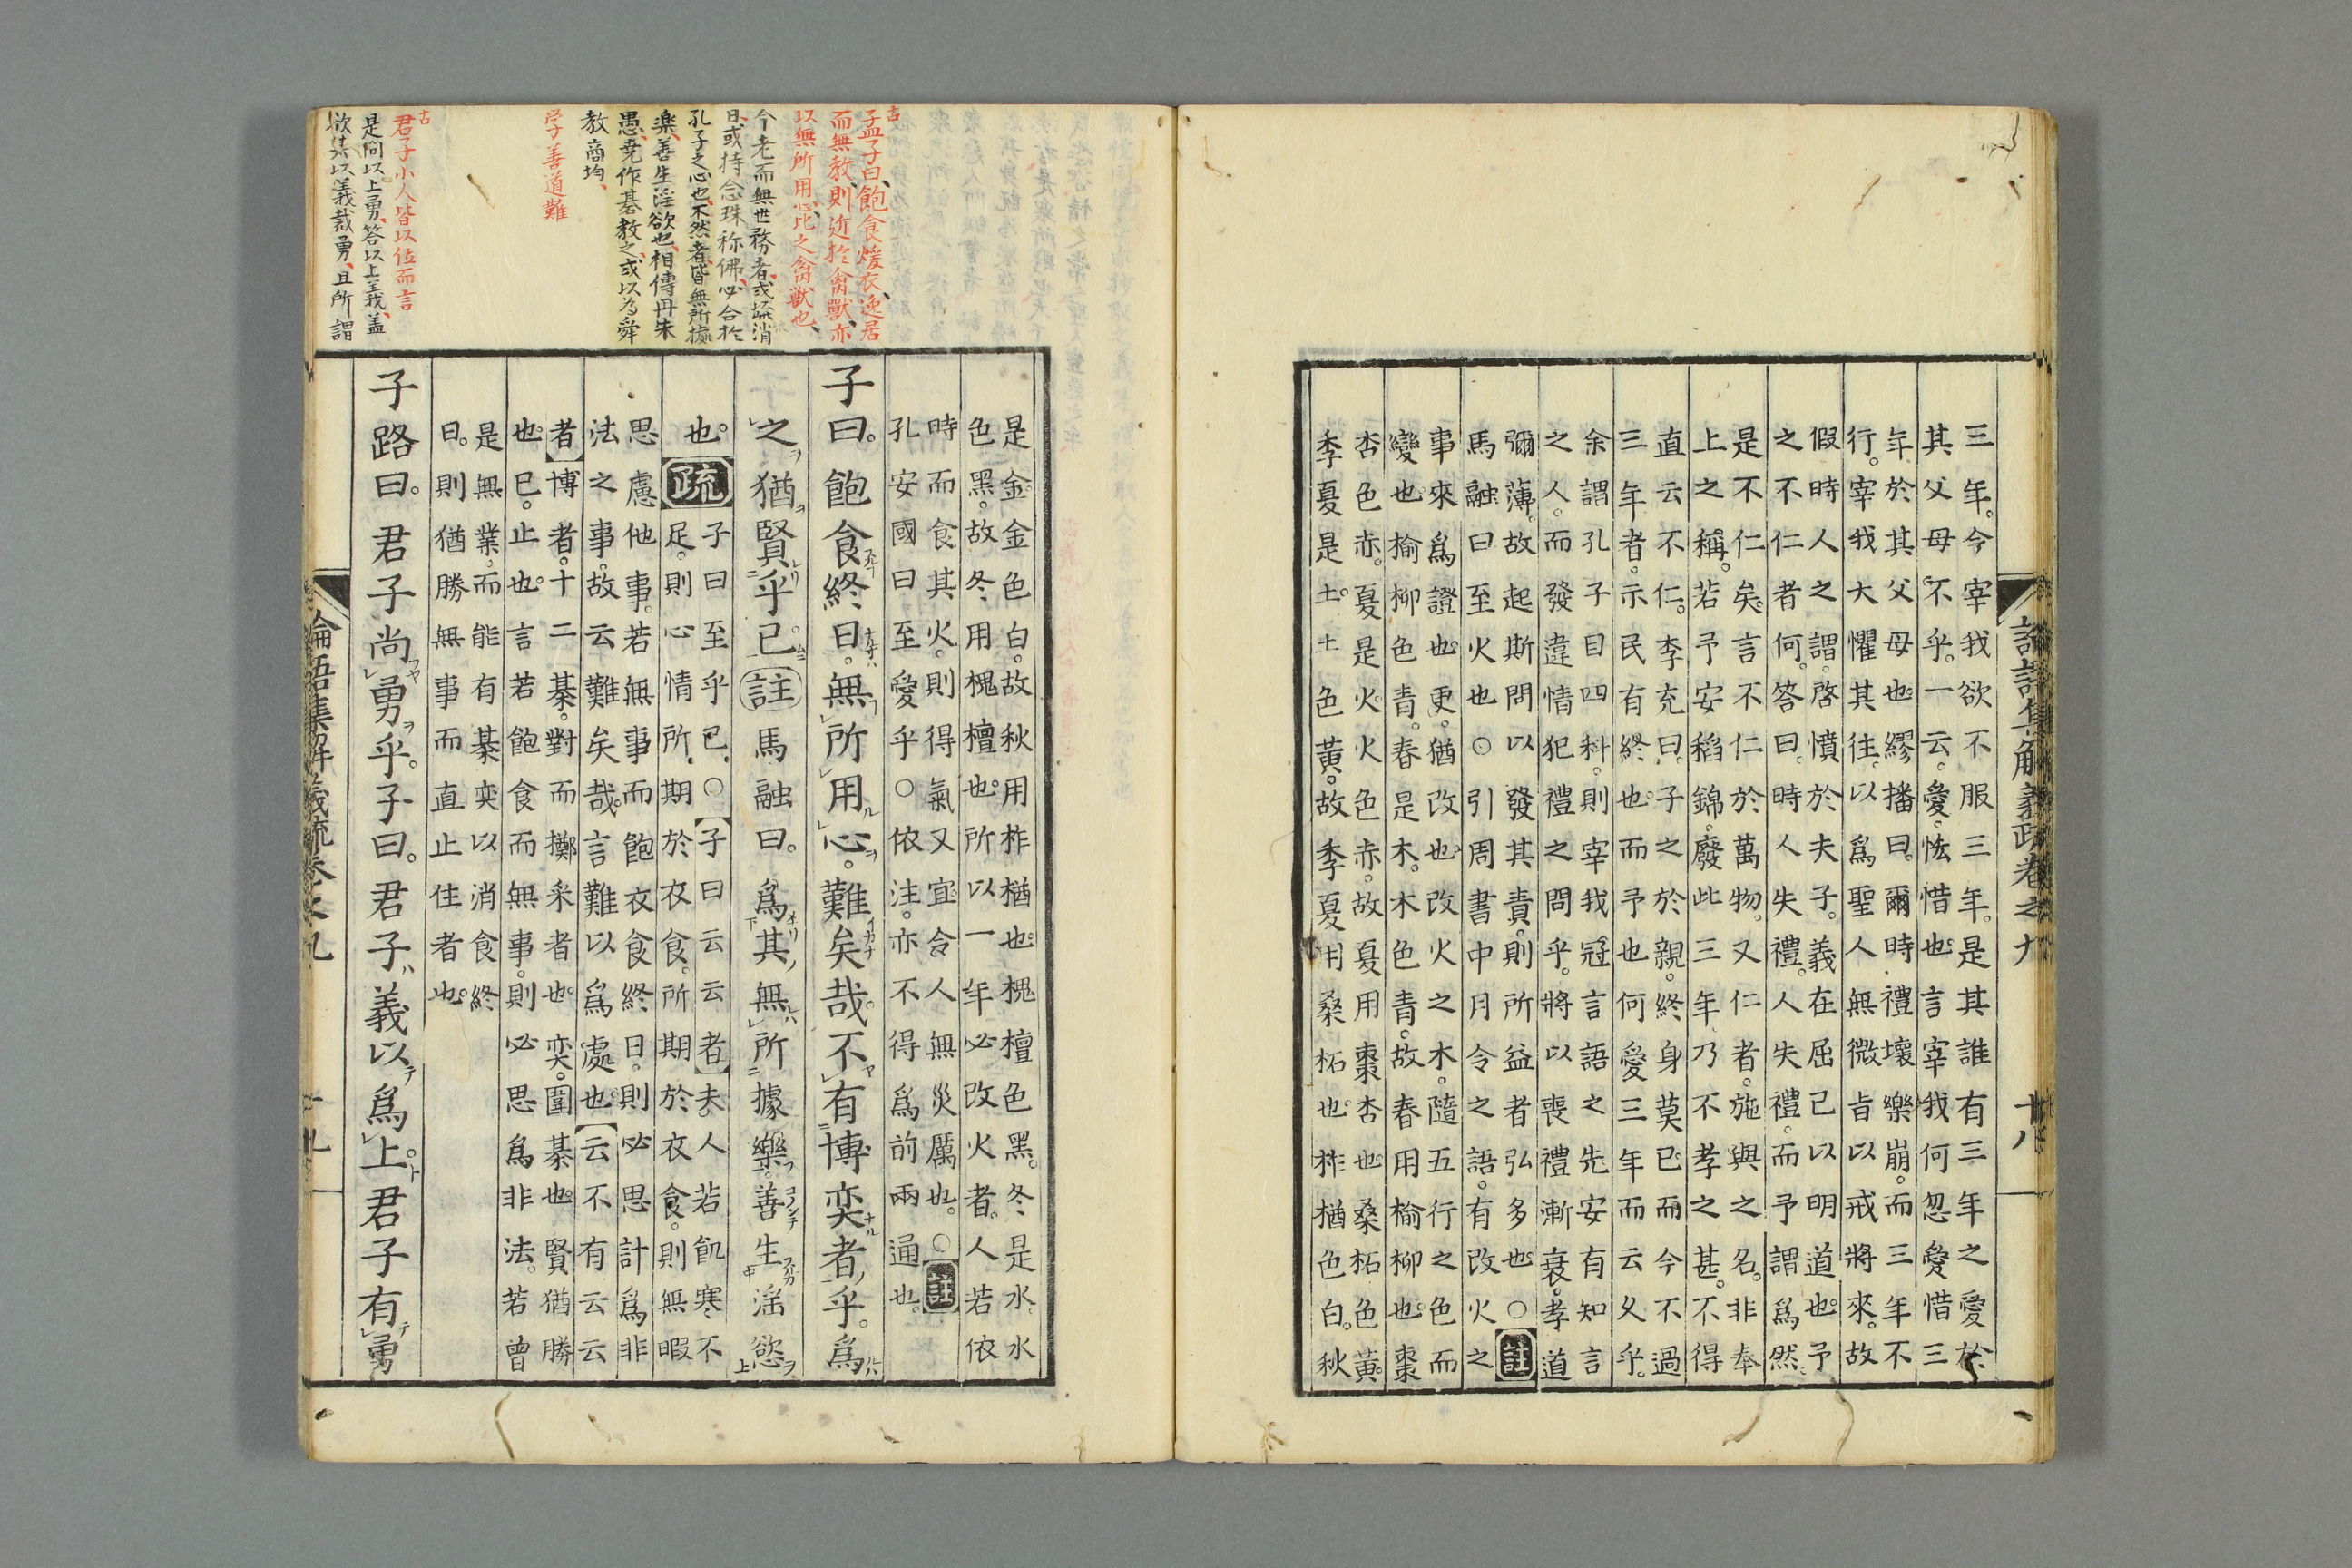 三年。今宰我欲不服三年。是其誰有三年之愛於
其父母不乎。一云。愛。悋惜也。言宰我何忽愛惜三
年於其父母也。繆播曰。爾時禮壞樂崩。而三年不
行。宰我大懼其往。以爲聖人無微旨以戒將來。故
假時人之謂。啓憤於夫子。義在屈己以明道也。予
之不仁者何。答曰。時人失禮。人失禮。而予謂爲然。
是不仁矣。言不仁於萬物。又仁者。施與之名。非奉
上之稱。若予安稻錦。廢此三年乃不孝之甚。不得
直云不仁。李充曰。子之於親。終身莫已。而今不過
三年者。示民有終也。而予也何愛三年而云乆乎。
余謂孔子目四科。則宰我冠言語之先安有知言
之人。而發違情犯禮之問乎。將以喪禮漸衰。孝道
彌薄。故起斯問以發其責。則所益者弘多也○註
馬融曰至火也○引周書中月令之語。有改火之
事來爲證也。更。猶改也改火之木。隨五行之色而
變也。榆柳色青。春是木。木色青。故春用榆柳也。棗
杏色赤。夏是火火色赤。故夏用棗杏也。桑柘色黃。
季夏是土。土色黃。故季夏用桑柘也。柞楢色白。秋
論語集解義疏卷之九 十八
孟子曰、飽食煖衣、逸居
而無教、則近於禽獸、亦
以無所用心比之禽獸也、
今老而無世務者、或棊消
日、或持念珠称佛、必合於
孔子之心也、不然者、皆無所據
楽、善生淫欲也、相傳丹朱
愚、尭作碁教之、或以為舜
教商均、
学善道難
君子小人皆以位而言
是問以上勇、答以上義、蓋
欲其以義裁勇、且所謂
是金。金色白。故秋用柞楢也。槐檀色黑。冬是水。水
色黑。故冬用槐檀也。所以一年必改火者。人若依
時而食其火。則得氣又宜令人無災厲也。○註
孔安國曰至愛乎○依注。亦不得爲前兩通也。
子曰。飽食終日。無所用心。難矣哉。不有博奕者乎。爲
之猶賢乎已註馬融曰。爲其無所據樂。善生淫慾
也。疏子曰至乎已。○子曰云云者夫人若飢寒不
足。則心情所。期於衣食。所期於衣食。則無暇
思慮他事。若無事而飽衣食終日。則必思計爲非
法之事。故云難矣哉。言難以爲處也。云不有云云
者博者。十二棊。對而擲釆者也。奕。圍棊也。賢猶勝
也。已。止也。言若飽食而無事。則必思爲非法。若曾
是無業。而能有棊奕以消食終
日。則猶勝無事而直止住者也。
子路曰。君子尚勇乎。子曰。君子義以爲上。君子有勇
論語集解義疏卷之九 十九